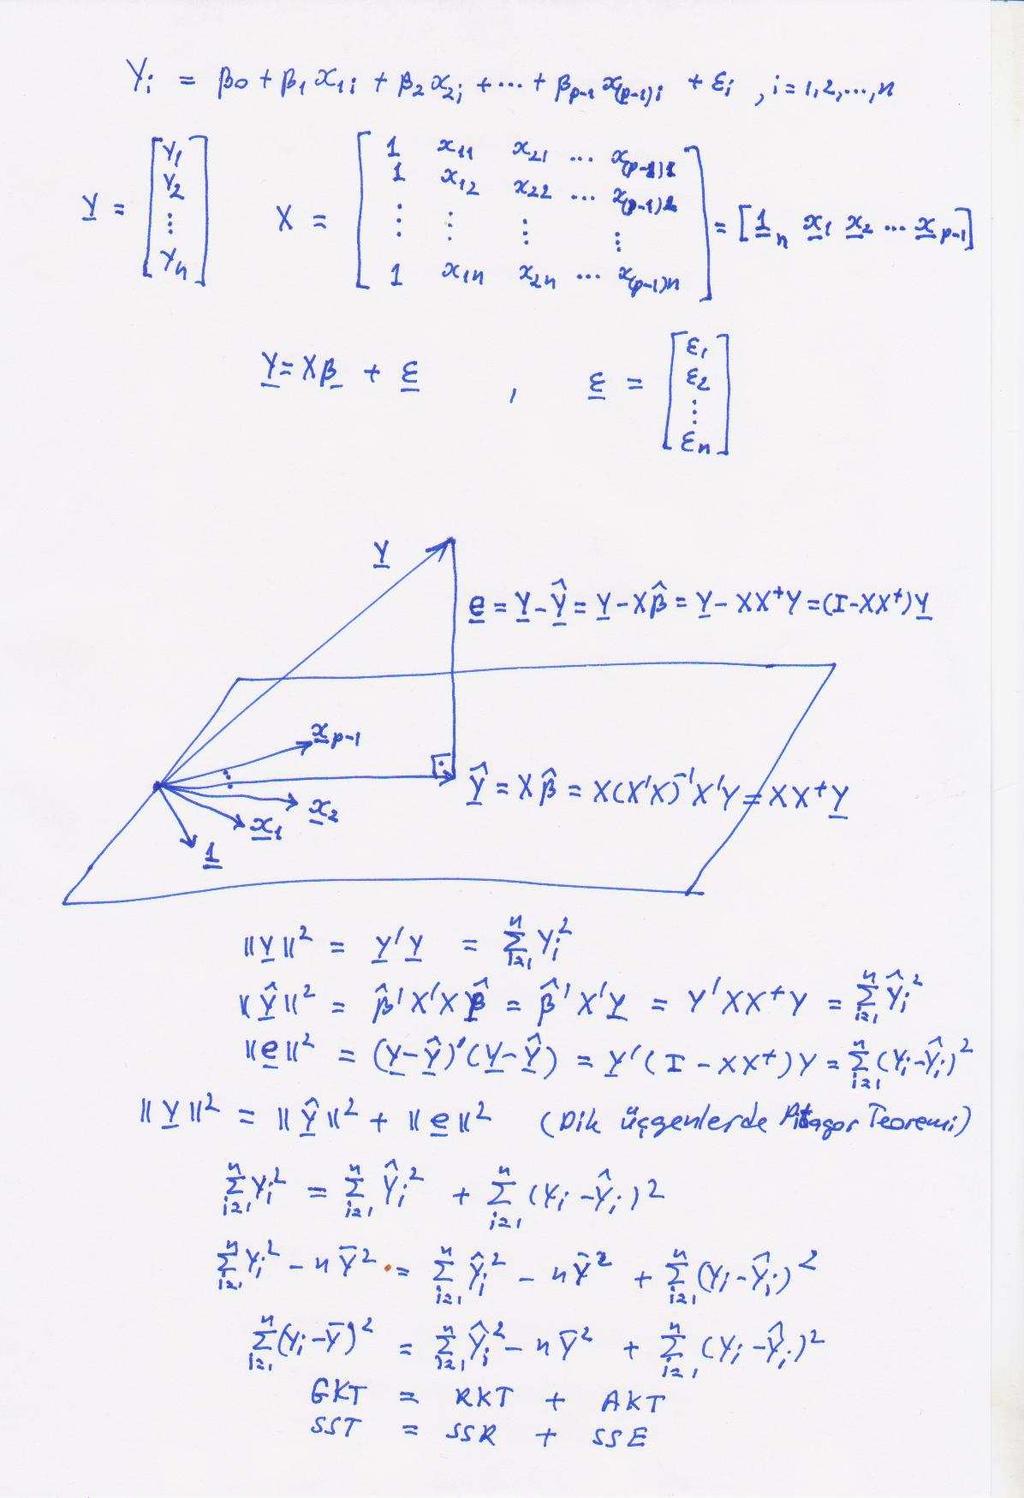 Yi = β0 + β1 x1i + β2 x2i + ... + βp-1 x(p-1)i + εi , i = 1,2,...,n
Y = [Y1 Y2 ⋮ Yn] X = [1 x11 x21 ... x(p-1)1
1 x12 x22 ... x(p-1)2
⋮ ⋮ ⋮ ⋮
1 x1n x2n ... x(p-1)n] = [1n x1 x2 ... xp-1]
Y = Xβ + ε , ε = [ε1 ε2 ⋮ εn]
Y
e = Y - Ŷ = Y - Xβ̂ = Y - XX⁺Y = (I - XX⁺)Y
xp-1
Ŷ = Xβ̂ = X(X'X)⁻¹X'Y = XX⁺Y
x2
x1
1
||Y||² = Y'Y = Σ(i=1, n) Yi²
||Ŷ||² = β̂'X'Xβ̂ = β̂'X'Y = Y'XX⁺Y = Σ(i=1, n) Ŷi²
||e||² = (Y - Ŷ)'(Y - Ŷ) = Y'(I - XX⁺)Y = Σ(i=1, n) (Yi - Ŷi)²
||Y||² = ||Ŷ||² + ||e||² (Dik üçgenlerde Pitagor Teoremi)
Σ(i=1, n) Yi² = Σ(i=1, n) Ŷi² + Σ(i=1, n) (Yi - Ŷi)²
Σ(i=1, n) Yi² - nȲ² = Σ(i=1, n) Ŷi² - nȲ² + Σ(i=1, n) (Yi - Ŷi)²
Σ(i=1, n) (Yi - Ȳ)² = Σ(i=1, n) Ŷi² - nȲ² + Σ(i=1, n) (Yi - Ŷi)²
GKT = RKT + AKT
SST = SSR + SSE